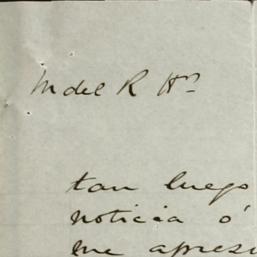 M del R Hn
tan luego
noticia ó
me apresu